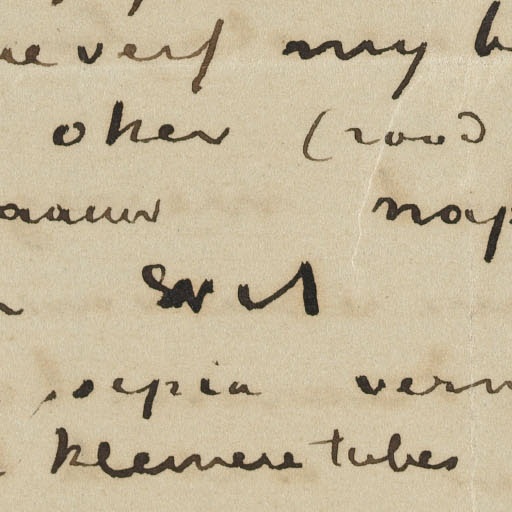 verf my
oker (rood
nap
wit
sepia verm
kleinere tubes